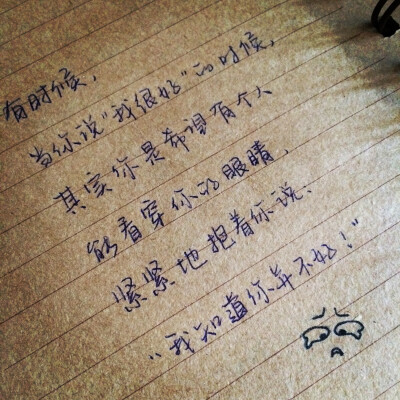 有时候，
当你说“我很好”的时候，
其实你是希望有个人
能看穿你的眼睛，
紧紧地抱着你说：
“我知道你并不好！”